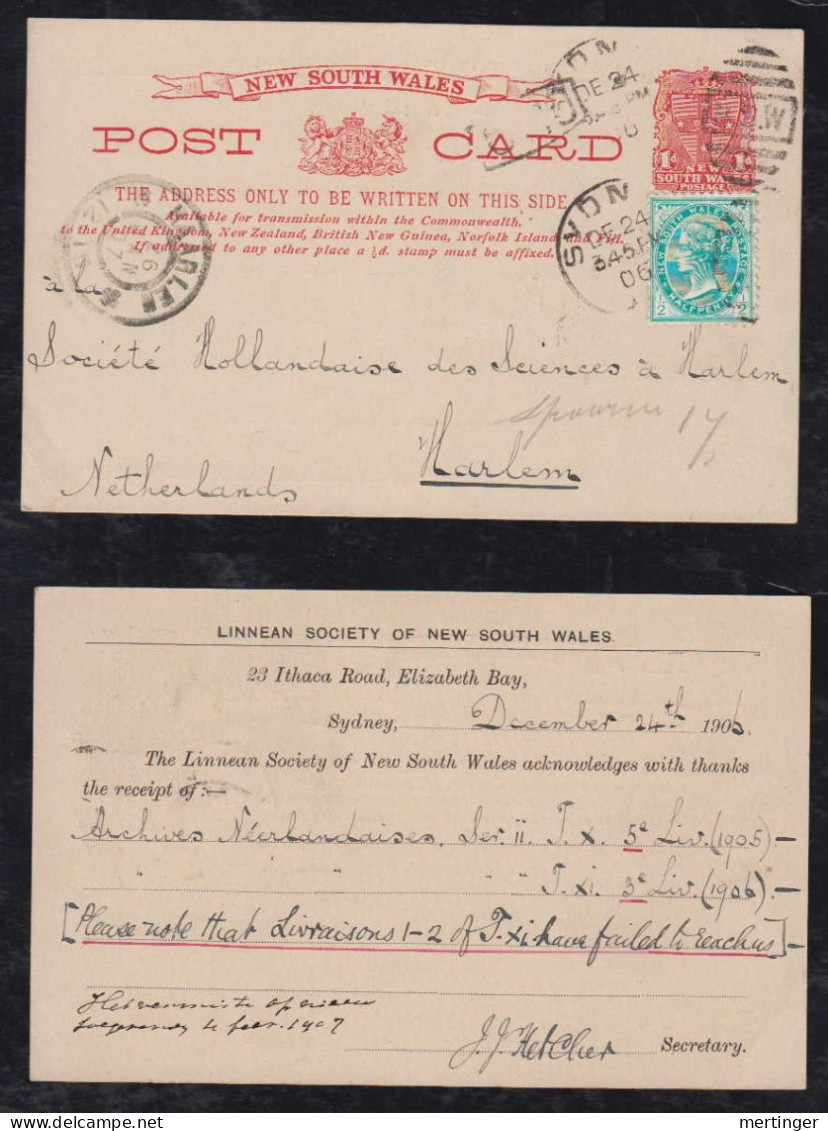 NEW SOUTH WALES
POST CARD
THE ADDRESS ONLY TO BE WRITTEN ON THIS SIDE
Available for transmission within the Commonwealth,
to the United Kingdom, New Zealand, British New Guinea, Norfolk Island and Fiji.
If addressed to any other place a ½d. stamp must be affixed.
1d 1d
NEW
SOUTH WALES
POSTAGE
N.S.W
SYDN
DE 24
SYDN
DE 24
3.45.PM
06
NEW SOUTH WALES POSTAGE
HALFPENNY
1/2 1/2
HAARLEM
à la
Société Hollandaise des Sciences à Harlem
17
Harlem
Netherlands
LINNEAN SOCIETY OF NEW SOUTH WALES.
23 Ithaca Road, Elizabeth Bay,
Sydney, December 24th 1906.
The Linnean Society of New South Wales acknowledges with thanks
the receipt of:—
Archives Néerlandaises. Ser. ii. T. x. 5e Liv. (1905) —
" " " T. xi. 3e Liv. (1906) —
[Please note that Livraisons 1-2 of T. xi. have failed to reach us] —
4 febr. 1907
J. J. Fletcher Secretary.
mertinger